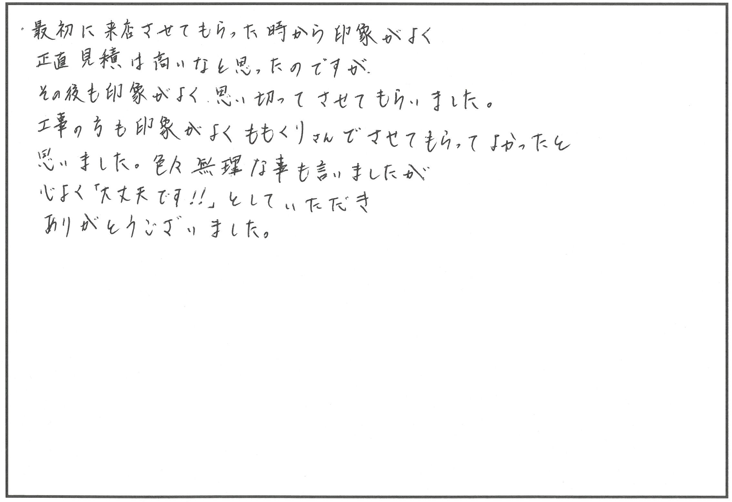 ・最初に来店させてもらった時から印象がよく
正直見積は高いなと思ったのですが、
その後も印象がよく、思い切ってさせてもらいました。
工事の方も印象がよくももくりさんでさせてもらってよかったと
思いました。色々無理な事も言いましたが
心よく「大丈夫です!!」としていただき
ありがとうございました。